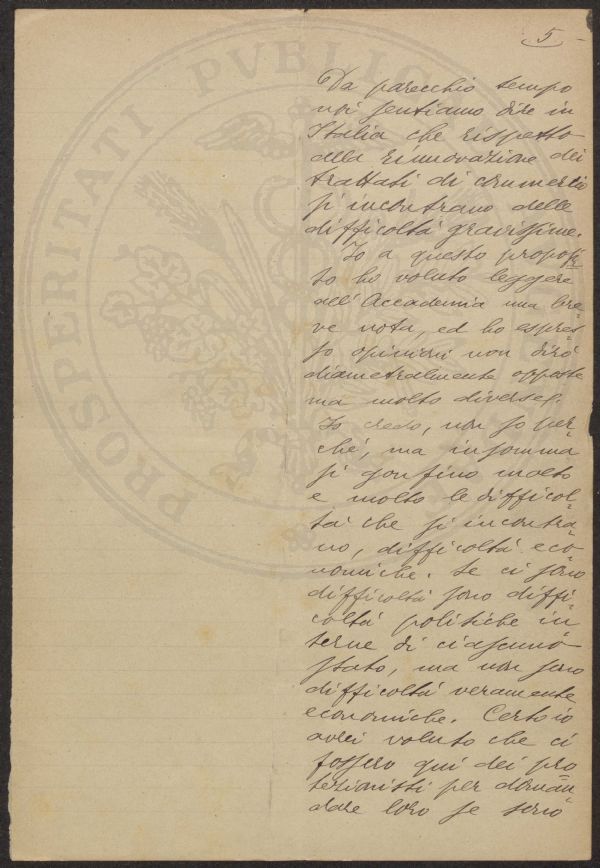 5
PROSPERITATI PVBLIC
Da parecchio tempo
noi sentiamo dire in
Italia che rispetto
alla rinnovazione dei
trattati di commercio
si incontrano delle
difficoltà gravissime.
Io a questo proposi
to ho voluto leggere
all'Accademia una bre-
ve nota, ed ho espres-
so opinioni non dirò
diametralmente opposte
ma molto diverse.
Io credo, non so per-
ché, ma insomma
si gonfino molto
e molto le difficol-
tà che si incontra-
no, difficoltà eco-
nomiche. Se ci sono
difficoltà sono diffi-
coltà politiche in-
terne di ciascuno
stato, ma non sono
difficoltà veramente
economiche. Certo io
avrei voluto che ci
fossero qui dei pro
tezionisti per doman-
dare loro se sono